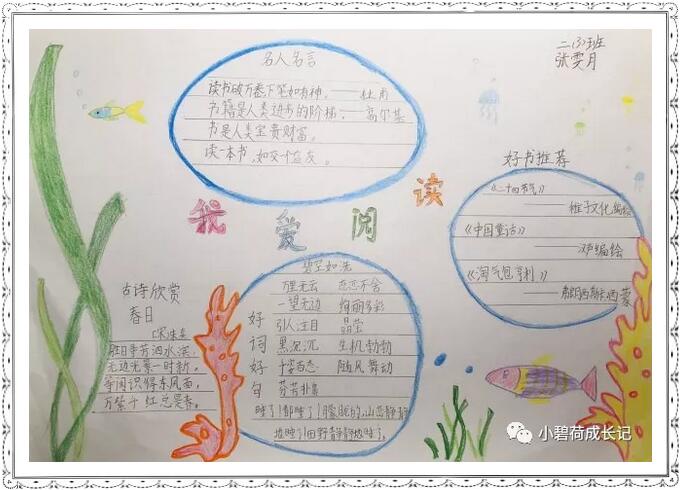 二(3)班
张雯月
名人名言
读书破万卷下笔如有神。——杜甫
书籍是人类进步的阶梯。——高尔基
书是人类宝贵财富。
读一本书,如交一个益友。
我爱阅读
好书推荐
《二十四节气》
——稚子文化编绘
《中国童话》
编绘
《淘气包亨利》
古诗欣赏
春日
宋朱熹
胜日寻芳泗水滨,
无边光景一时新,
等闲识得东风面,
万紫千红总是春。
好词好句
碧空如洗
万里无云 恋恋不舍
一望无边 绚丽多彩
引人注目 晶莹
黑沉沉 生机勃勃
千姿百态 随风舞动
芬芳扑鼻
睡了!都睡了!朦胧的山峦静静
地睡了!田野静静地睡了。
小碧荷成长记